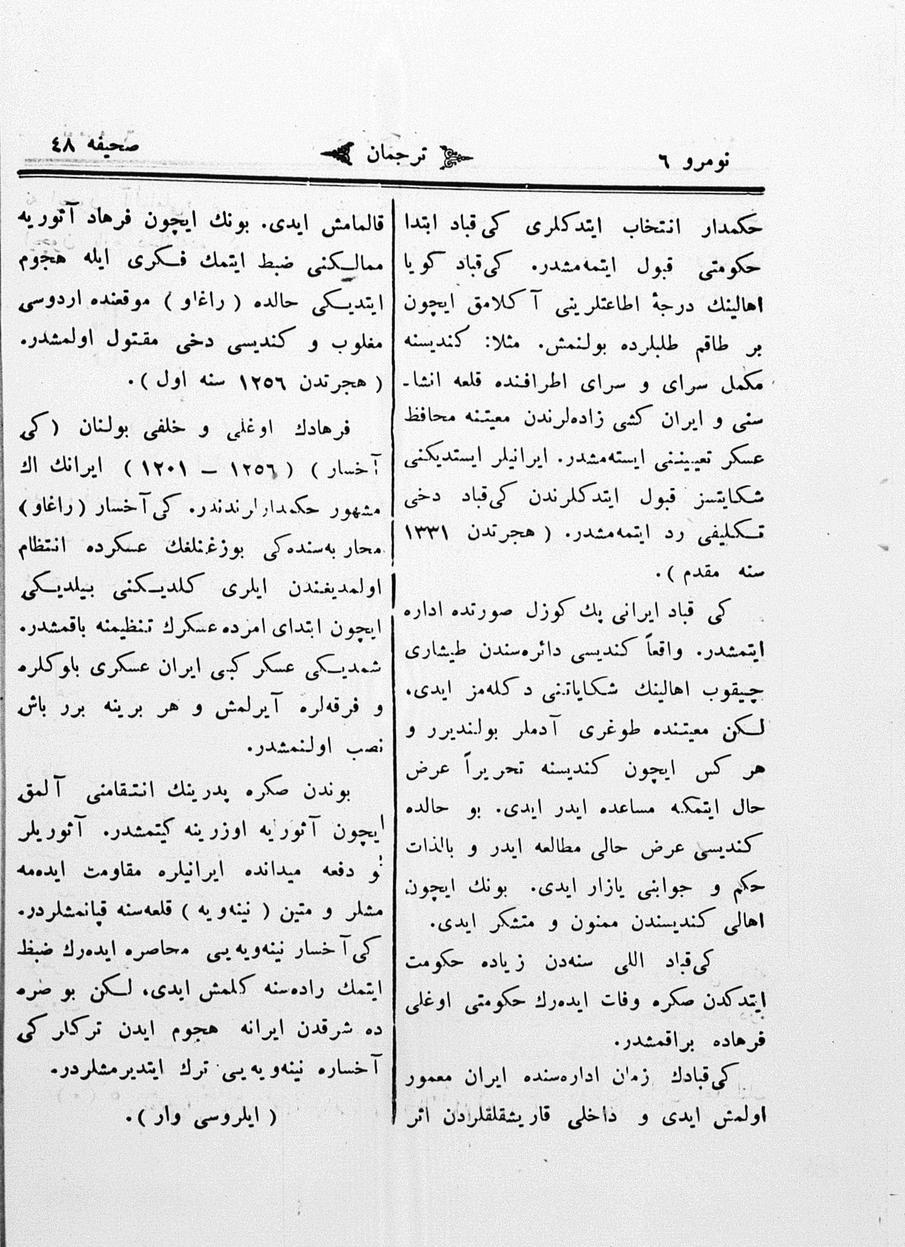 نومرو ٦
ترجمان
صحیفه ٤٨
حکمدار انتخاب ایتدکلری کی‌قباد ابتدا
حکومتی قبول ایتمه‌مشدر. کی‌قباد کویا
اهالینك درجهٔ اطاعتلرینی آکلامق ایچون
بر طاقم طلبلرده بولنمش. مثلا: کندیسنه
مکمل سرای و سرای اطرافنده قلعه انشا-
سنی و ایران کشی زاده‌لرندن معیتنه محافظ
عسکر تعییننی ایسته‌مشدر. ایرانیلر ایستدیکنی
شکایتسز قبول ایتدکلرندن کی‌قباد دخی
تکلیفی رد ایتمه‌مشدر. (هجرتدن ١٣٣١
سنه مقدم).
کی قباد ایرانی پك کوزل صورتده اداره
ایتمشدر. واقعاً کندیسی دائره‌سندن طیشاری
چیقوب اهالینك شکایاتنی دکله‌مز ایدی،
لکن معیتنده طوغری آدملر بولندیرر و
هر کس ایچون کندیسنه تحریراً عرض
حال ایتمکه مساعده ایدر ایدی. بو حالده
کندیسی عرض حالی مطالعه ایدر و بالذات
حکم و جوابنی یازار ایدی. بونك ایچون
اهالی کندیسندن ممنون و متشکر ایدی.
کی‌قباد اللی سنه‌دن زیاده حکومت
ایتدکدن صکره وفات ایده‌رك حکومتی اوغلی
فرهاده براقمشدر.
کی‌قبادك زمان اداره‌سنده ایران معمور
اولمش ایدی و داخلی قاریشقلقلردن اثر
قالمامش ایدی. بونك ایچون فرهاد آثوریه
ممالکنی ضبط ایتمك فکری ایله هجوم
ایتدیکی حالده (راغاو) موقعنده اردوسی
مغلوب و کندیسی دخی مقتول اولمشدر.
(هجرتدن ١٢٥٦ سنه اول).
فرهادك اوغلی و خلفی بولنان (کی
آخسار) (١٢٥٦ — ١٢٠١) ایرانك اك
مشهور حکمدارلرندندر. کی‌آخسار (راغاو)
محاربه‌سنده‌کی بوزغنلغك عسکرده انتظام
اولمدیغندن ایلری کلدیکنی بیلدیکی
ایچون ابتدای امرده عسکرك تنظیمنه باقمشدر.
شمدیکی عسکر کبی ایران عسکری باوکلره
و فرقه‌لره آیرلمش و هر برینه برر باش
نصب اولنمشدر.
بوندن صکره پدرینك انتقامنی آلمق
ایچون آثوریه اوزرینه کیتمشدر. آثوریلر
دفعه میدانده ایرانیلره مقاومت ایده‌مه
مشلر و متین (نینه‌ویه) قلعه‌سنه قپانمشلردر.
کی‌آخسار نینه‌ویه‌یی محاصره ایده‌رك ضبط
ایتمك راده‌سنه کلمش ایدی، لکن بو صره
ده شرقدن ایرانه هجوم ایدن ترکلر کی
آخساره نینه‌ویه‌یی ترك ایتدیرمشلردر.
(ایلروسی وار).